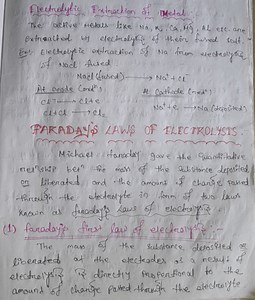 Electrolytic Extraction of Metal
The active metals like Na, K, Ca, Mg, Al, etc. are
extracted by electrolysis of their fused salt
Ex: Electrolytic extraction of Na from electrolysis
of NaCl fused
NaCl (fused) → Na⁺ + Cl⁻
At Anode (oxdⁿ) At Cathode (redⁿ)
Cl⁻ → Cl + e⁻ Na⁺ + e⁻ → Na (deposited)
Cl + Cl → Cl₂
FARADAY'S LAWS OF ELECTROLYSIS
Michael Faraday gave the quantitative
relⁿship betⁿ the mass of the substance deposited
or liberated and the amount of charge passed
through the electrolyte in form of two laws
known as faraday's laws of electrolysis.
(1) faraday's first law of electrolysis :-
The mass of the substance deposited or
liberated at the electrodes as a result of
electrolysis is directly proportional to the
amount of charge passed through the electrolyte